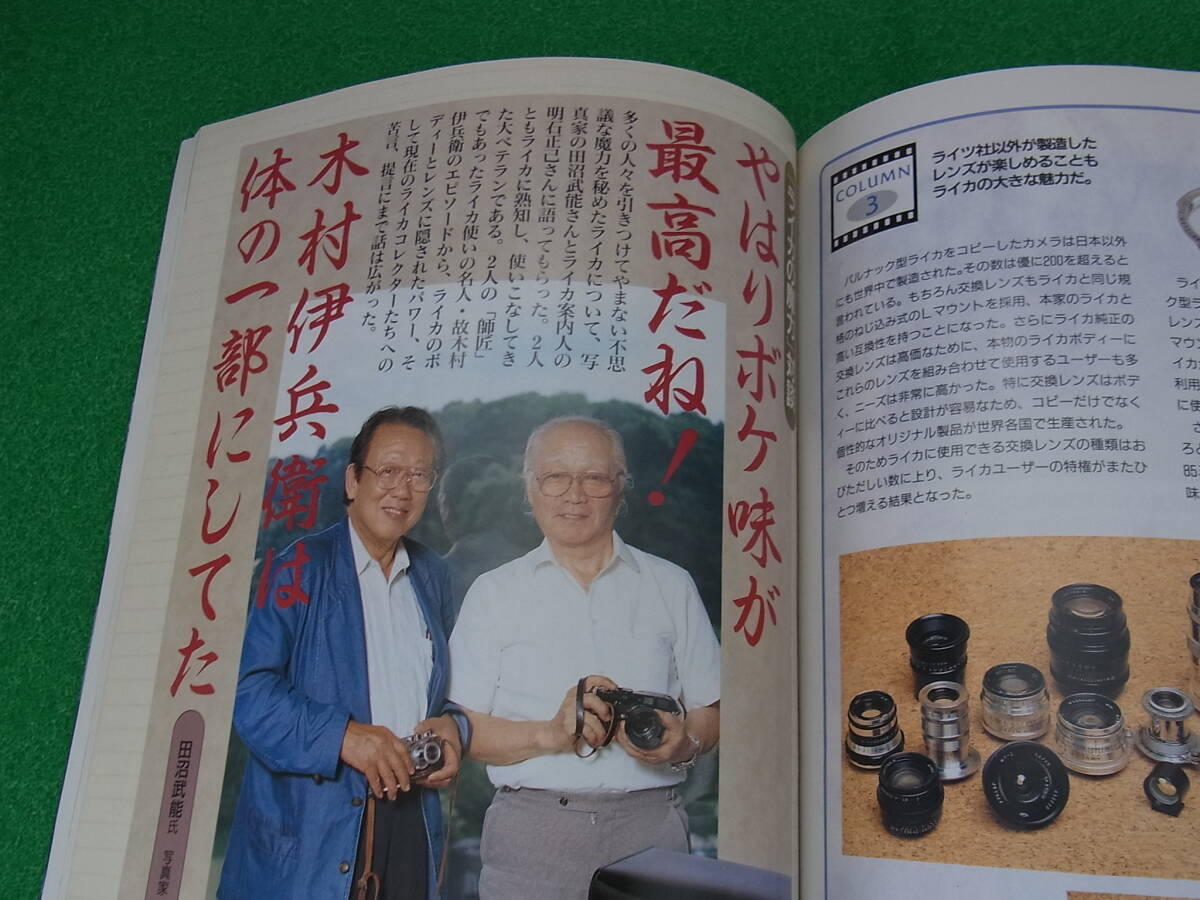 やはりボケ味が
最高だね！
多くの人々を引きつけてやまない不思
議な魔力を秘めたライカについて、写
真家の田沼武能さんとライカ案内人の
明石正巳さんに語ってもらった。2人
ともライカに熟知し、使いこなしてき
た大ベテランである。2人の「師匠」
でもあったライカ使いの名人・故木村
伊兵衛のエピソードから、ライカのボ
ディーとレンズに隠されたパワー、そ
して現在のライカコレクターたちへの
苦言、提言にまで話は広がった。
木村伊兵衛は
体の一部にしてた
田沼武能氏 写真家
COLUMN
3
ライツ社以外が製造した
レンズが楽しめることも
ライカの大きな魅力だ。
バルナック型ライカをコピーしたカメラは日本以外
にも世界中で製造された。その数は優に200を超えると
言われている。もちろん交換レンズもライカと同じ規
格のねじ込み式のLマウントを採用、本家のライカと
高い互換性を持つことになった。さらにライカ純正の
交換レンズは高価なために、本物のライカボディーに
これらのレンズを組み合わせて使用するユーザーも多
く、ニーズは非常に高かった。特に交換レンズはボデ
ィーに比べると設計が容易なため、コピーだけでなく
個性的なオリジナル製品が世界各国で生産された。
そのためライカに使用できる交換レンズの種類はお
びただしい数に上り、ライカユーザーの特権がまたひ
とつ増える結果となった。
ライ
ク型
レンズ
マウン
イカ
利用
に使
さ
ろと
85
味